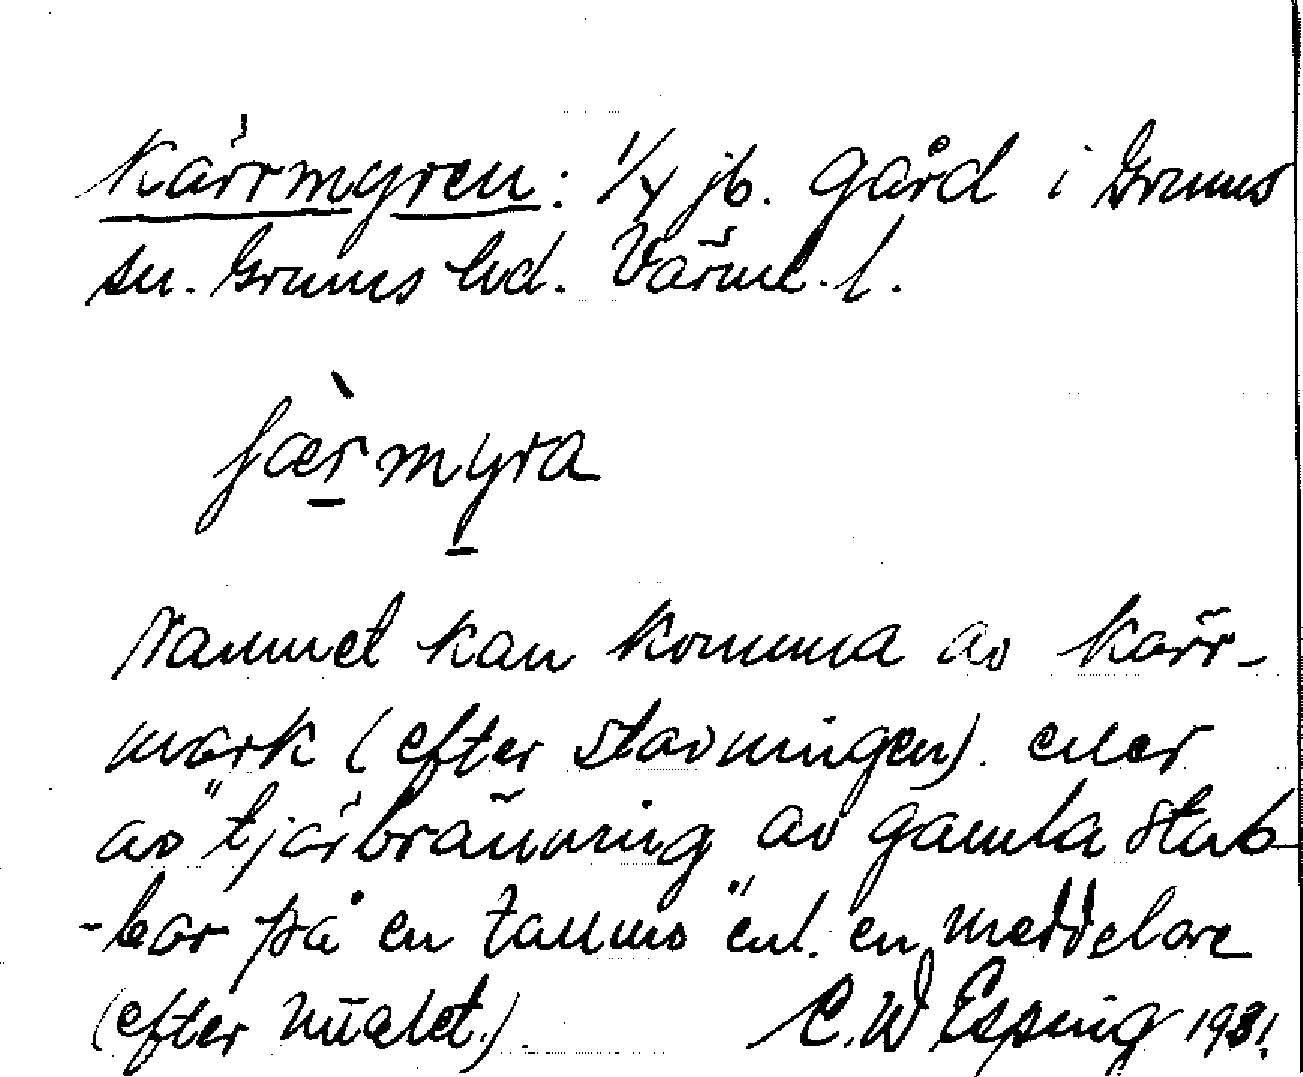 Kärrmyren: 1/4 jb. gård i Grums
sn. Grums hd. Värml. l.
fær̠myra
Namnet kan komma av kärr-
mark (efter stavningen). eller
av "tjärbränning av gamla stub-
-bar på en tallmo" enl. en meddelare
(efter målet.) C. W Esping 1931.